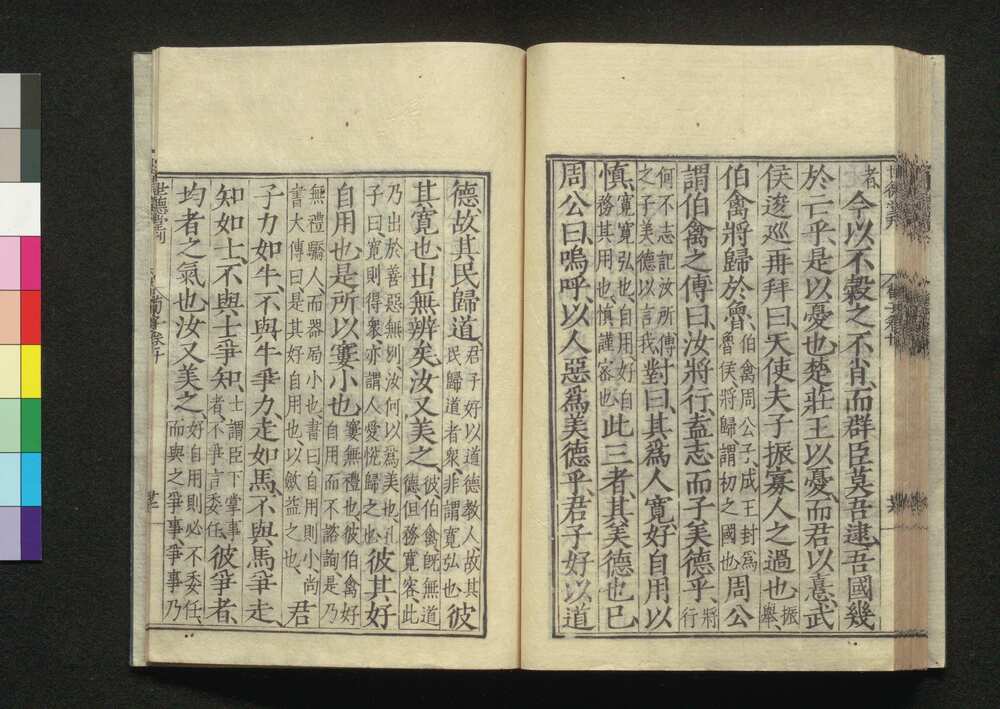 者今以不穀之不肖而群臣莫吾逮吾國幾
於亡乎是以憂也楚莊王以憂而君以憙武
侯逡巡再拜曰天使夫子振寡人之過也振舉
伯禽將歸於魯伯禽周公子成王封爲魯侯將歸謂初之國也周公
謂伯禽之傅曰汝將行盍志而子美德乎將行
何不志記汝所傅之子美德以言我對曰其爲人寬好自用以
慎寬寬弘也自用好自務其用也慎謹密也此三者其美德也已
周公曰嗚呼以人惡爲美德乎君子好以道
德故其民歸道君子好以道德教人故其民歸道者衆非謂寬弘也彼
其寬也出無辨矣汝又美之彼伯禽既無道德但務寬容此
乃出於善惡無別汝何以爲美也孔子曰寬則得衆亦謂人愛悅歸之也彼其好
自用也是所以窶小也窶無禮也彼伯禽好自用而不諮詢是乃
無禮驕人而器局小也書曰自用則小尚書大傳曰是其好自用也以斂益之也君
子力如牛不與牛爭力走如馬不與馬爭走
知如士不與士爭知士謂臣下掌事者不爭言委任彼爭者
均者之氣也汝又美之好自用則必不委任而與之爭事爭事乃